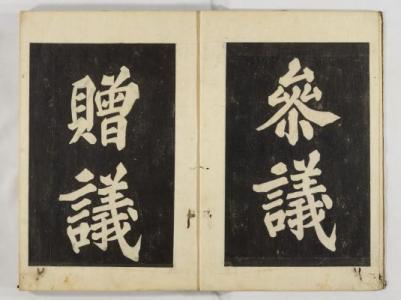 叅議
贈議